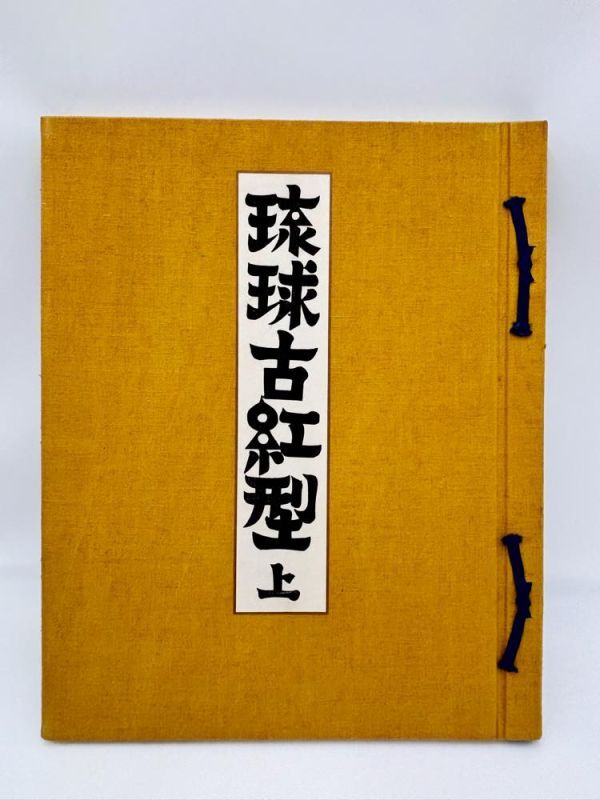 琉球古紅型 上